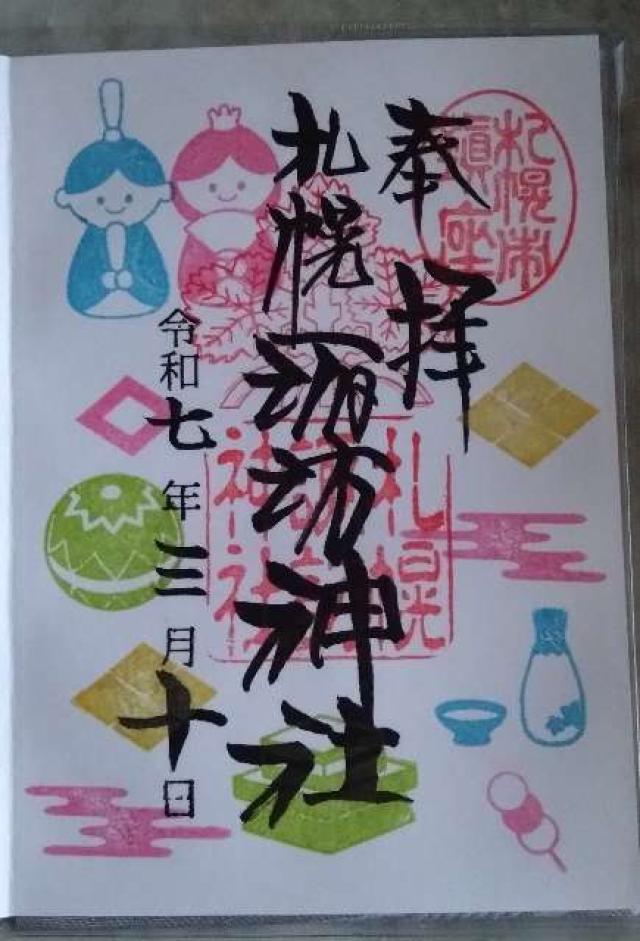 奉拝
札幌市
鎮座
札幌諏訪神社
札幌
諏訪
神社
令和七年三月十日